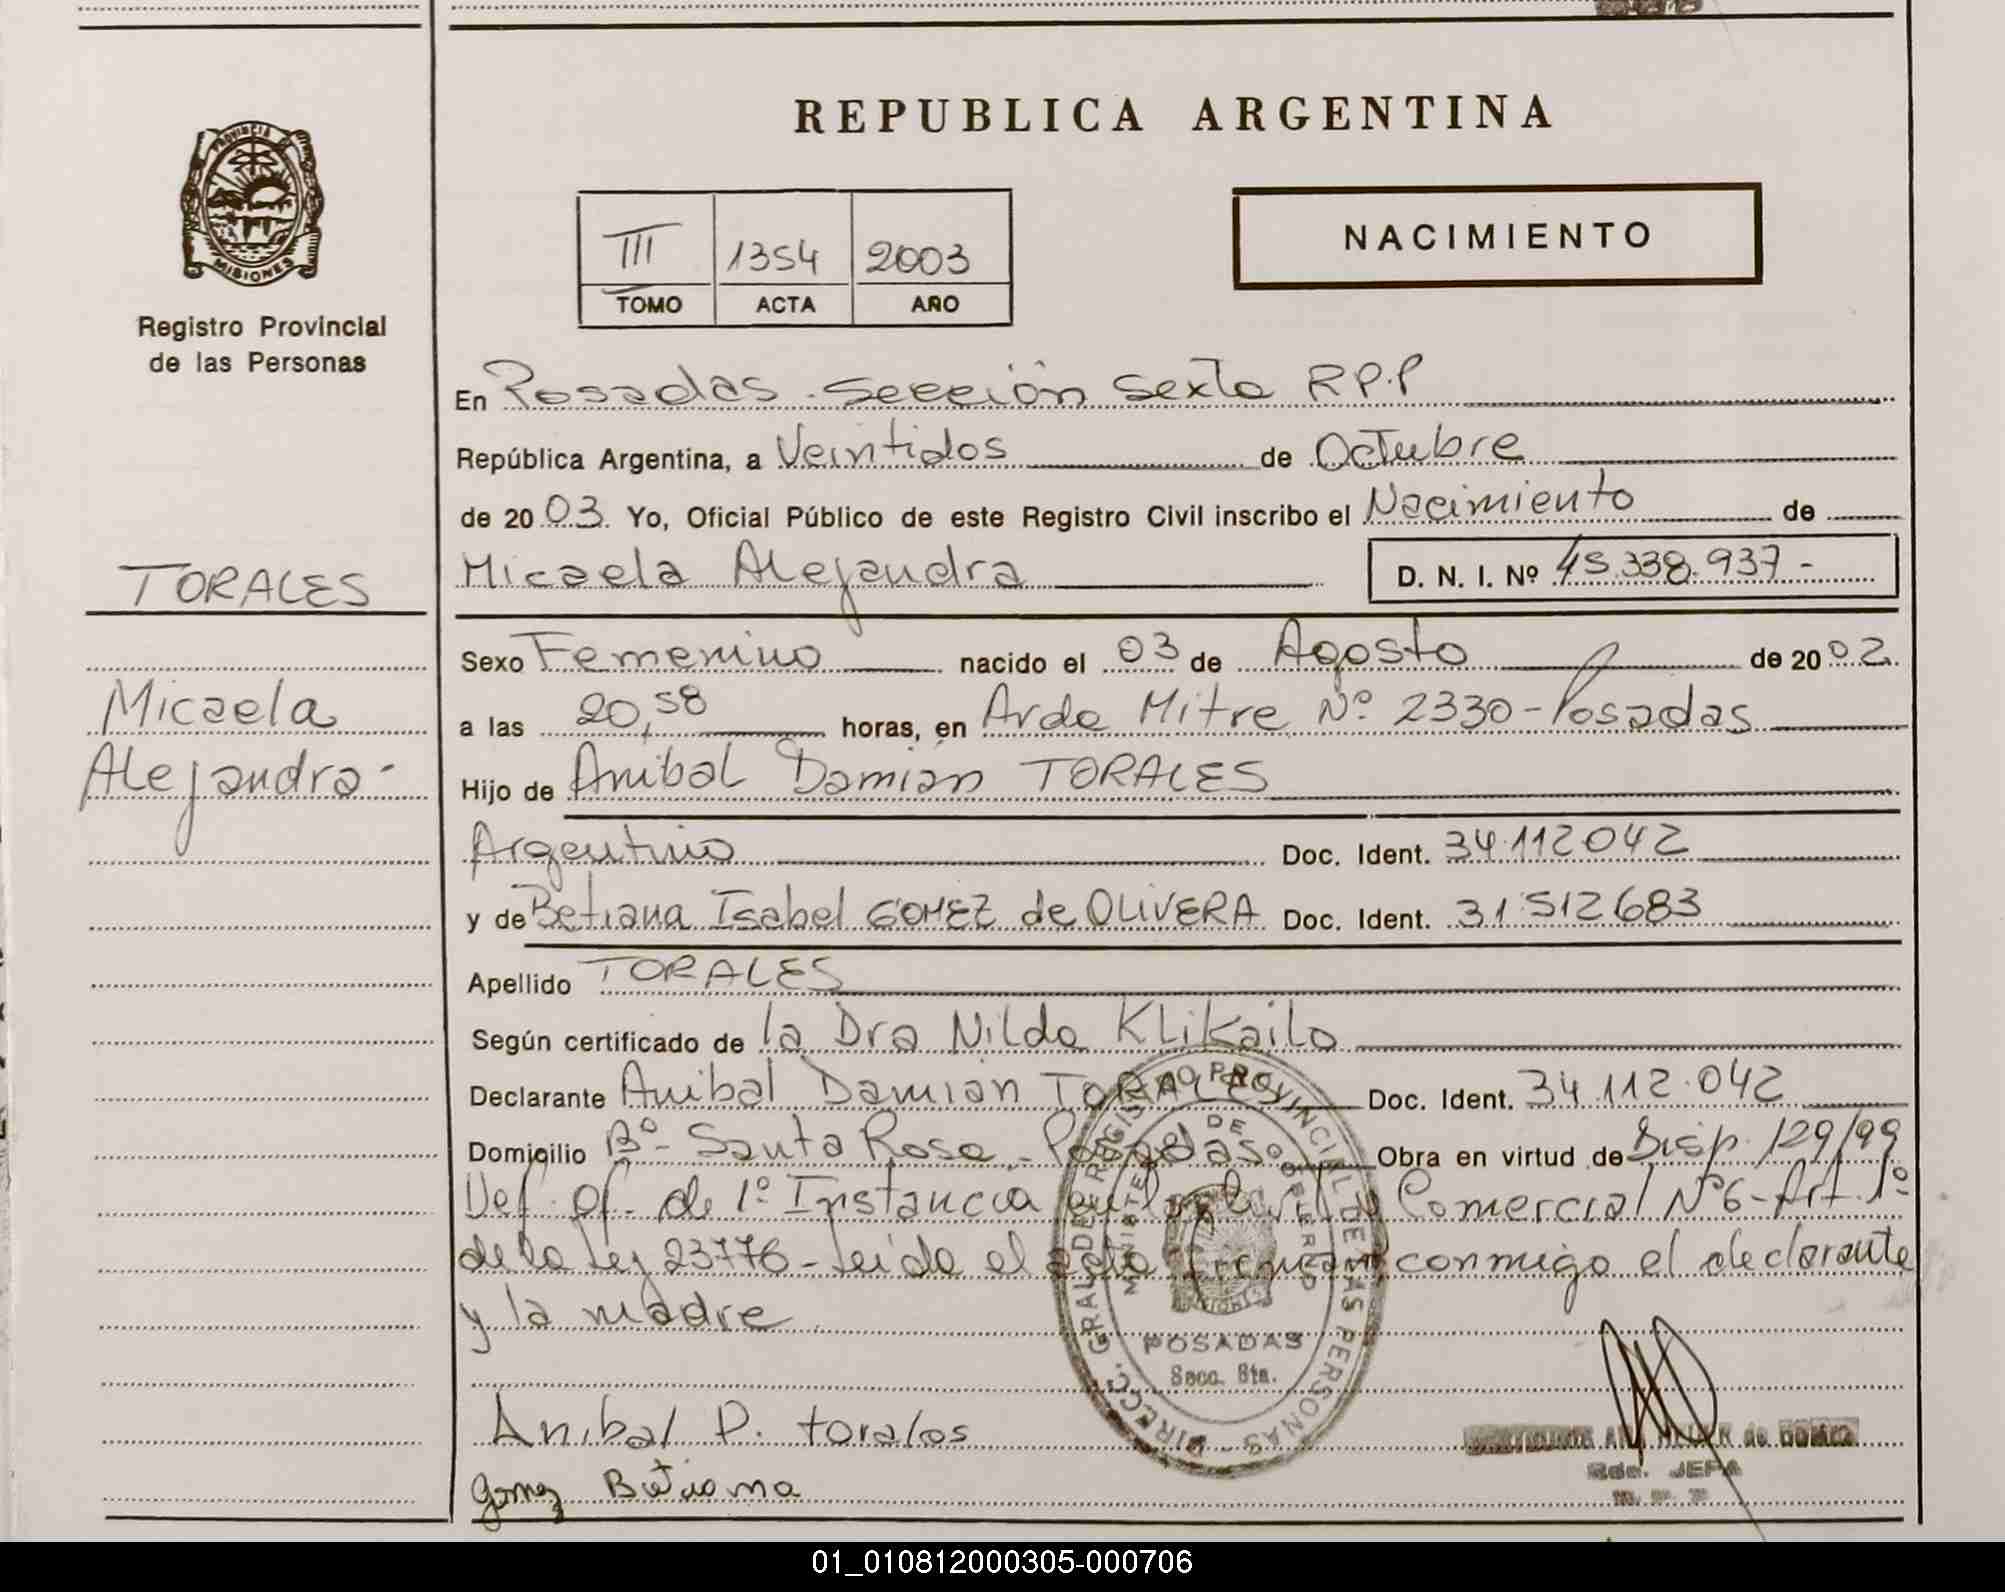 REPUBLICA ARGENTINA
PROVINCIA
MISIONES
Registro Provincial
de las Personas
III 1354 2003
TOMO ACTA AÑO
NACIMIENTO
En Posadas - Sección Sexta R.P.P
República Argentina, a Veintidos de Octubre
de 20 03. Yo, Oficial Público de este Registro Civil inscribo el Nacimiento de
Micaela Alejandra D. N. I. Nº 45.338.937 -
TORALES
Micaela
Alejandra -
Sexo Femenino nacido el 03 de Agosto de 20 02.
a las 20,58 horas, en Avda Mitre Nº 2330 - Posadas
Hijo de Anibal Damián TORALES
Argentino Doc. Ident. 34.112.042
y de Betiana Isabel GOMEZ de OLIVERA Doc. Ident. 31.512.683
Apellido TORALES
Según certificado de la Dra Nilda Klikailo
Declarante Anibal Damián TORALES Doc. Ident. 34.112.042
Domicilio Bº - Santa Rosa - Posadas Obra en virtud de Disp. 129/99
Def. Of. de 1º Instancia en lo Civil y Comercial Nº 6 - Art. 1º
de la Ley 23776 - Leida el acta firman conmigo el declarante
y la madre
DIRECC. GRAL DE REGISTRO PROVINCIAL DE LAS PERSONAS
MINISTERIO DE GOBIERNO
POSADAS
Secc. 6ta.
Anibal D. torales
Gomez Betiana
de GOMEZ
JEFA
01_010812000305-000706